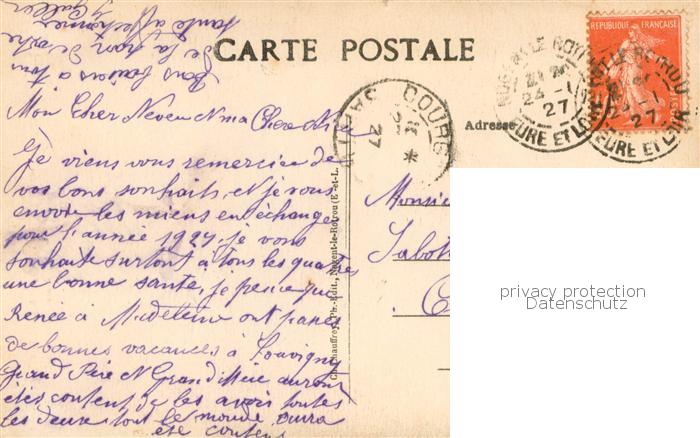 CARTE POSTALE
REPUBLIQUE FRANÇAISE
POSTES
NOGENT LE ROTROU
24 -1
27
EURE ET LOIR
NOGENT LE ROTROU
24 -1
27
EURE ET LOIR
COURS
27
Adresse
Mon Cher Neveu & ma Chere Niece
Je viens vous remercier de
vos bons souhaits, & je vous
envoie les miens en échange
pour l'année 1927, je vous
souhaite surtout à tous les quatres
une bonne santé, je pense que
Renée & Madeleine ont passé
de bonnes vacances à Louvigny
Grand Père & Grand Mère auront
étés content de les avoir toutes
les deux, tout le monde aura
été content
Bons baisers a tous
de la part de votre
tante affectionnée
Monsieur
Sabot
Chauffroy, Ph.-Edit., Nogent-le-Rotrou (E-et-L.
privacy protection
Datenschutz